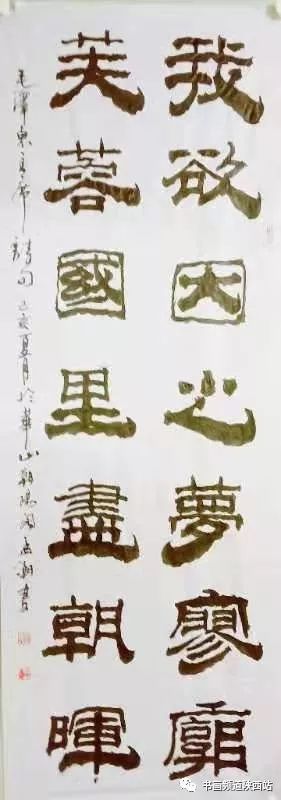 我欲因之夢寥廓
芙蓉國里盡朝暉
毛澤東主席詩句 己亥夏月於華山朝陽閣書
书画频道陕西站